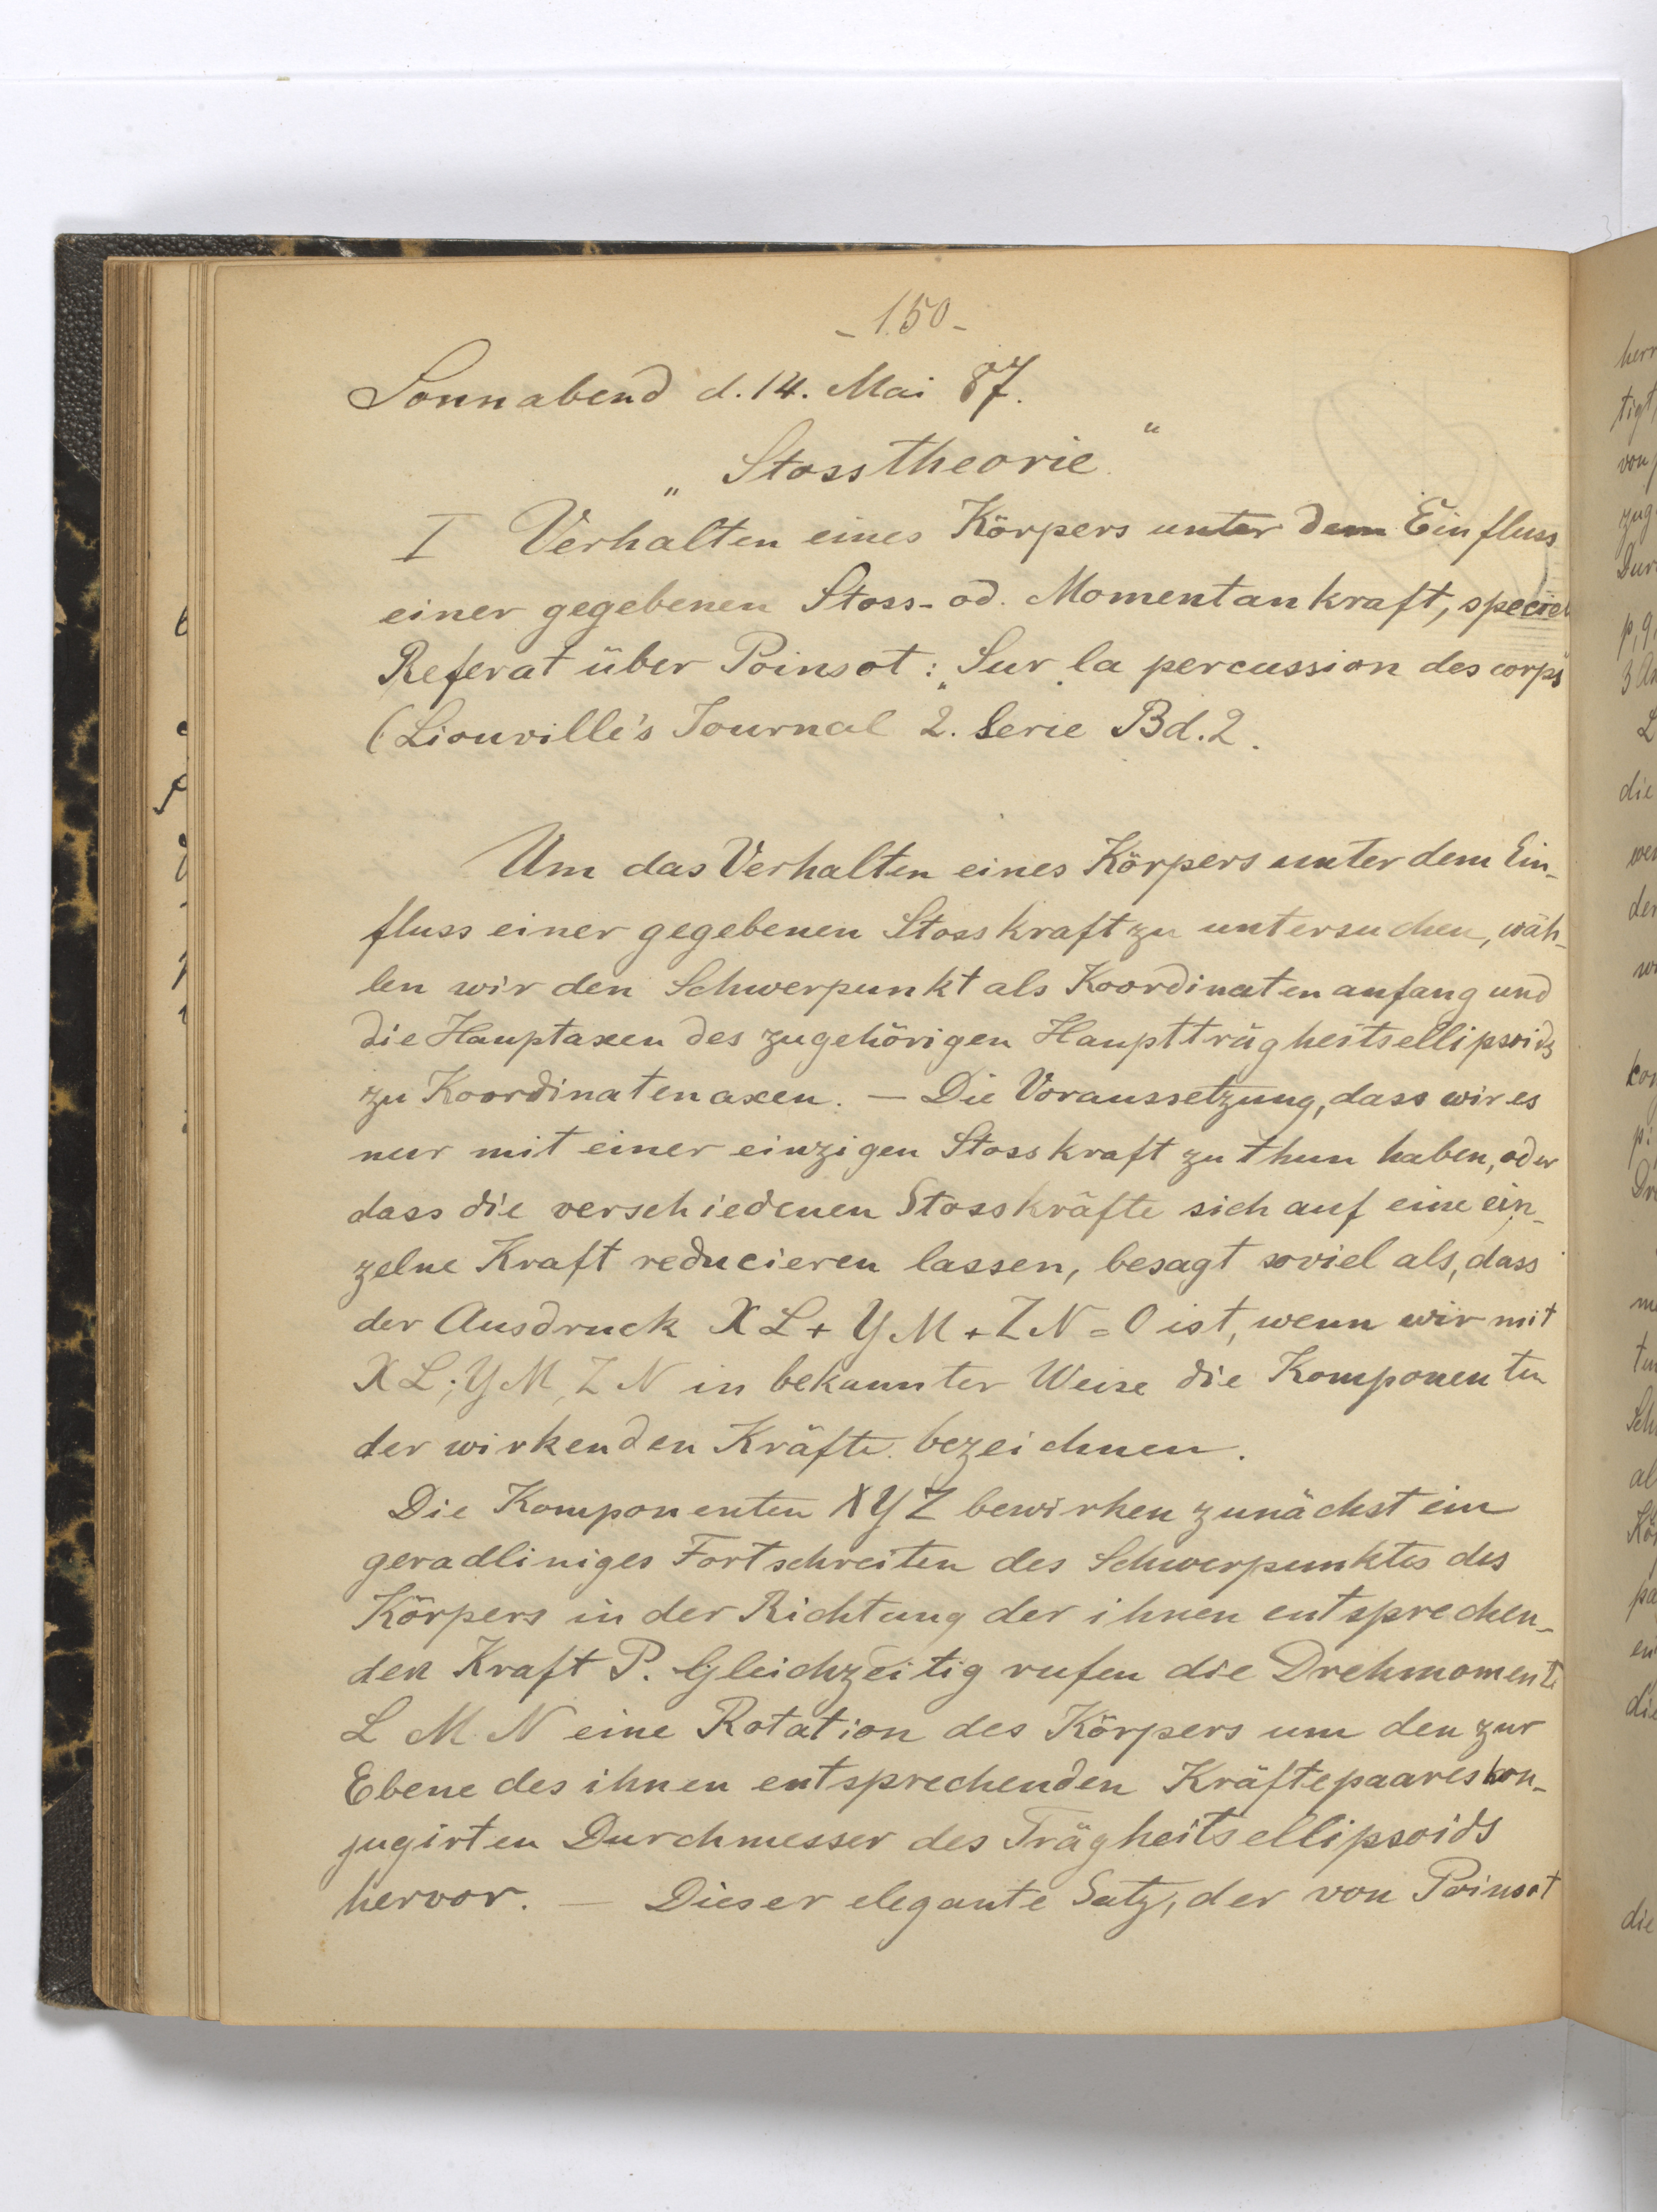 - 150 -
Sonnabend d. 14. Mai 87.
„Stosstheorie“
I Verhalten eines Körpers unter dem Einfluss
einer gegebenen Stoss- od. Momentankraft, speciel
Referat über Poinsot: „Sur la percussion des corps“
(Liouville's Journal 2. Serie Bd. 2.
Um das Verhalten eines Körpers unter dem Ein-
fluss einer gegebenen Stosskraft zu untersuchen, wäh-
len wir den Schwerpunkt als Koordinatenanfang und
die Hauptaxen des zugehörigen Hauptträgheitsellipsoids
zu Koordinatenaxen. — Die Voraussetzung, dass wir es
nur mit einer einzigen Stosskraft zu thun haben, oder
dass die verschiedenen Stosskräfte sich auf eine ein-
zelne Kraft reducieren lassen, besagt soviel als, dass
der Ausdruck XL + YM + ZN = 0 ist, wenn wir mit
XL; YM, ZN in bekannter Weise die Komponenten
der wirkenden Kräfte bezeichnen.
Die Komponenten XYZ bewirken zunächst ein
geradliniges Fortschreiten des Schwerpunktes des
Körpers in der Richtung der ihnen entsprechen-
den Kraft P. Gleichzeitig rufen die Drehmomente
L M N eine Rotation des Körpers um den zur
Ebene des ihnen entsprechenden Kräftepaares kon-
jugirten Durchmesser des Trägheitsellipsoids
hervor. — Dieser elegante Satz, der von Poinsot